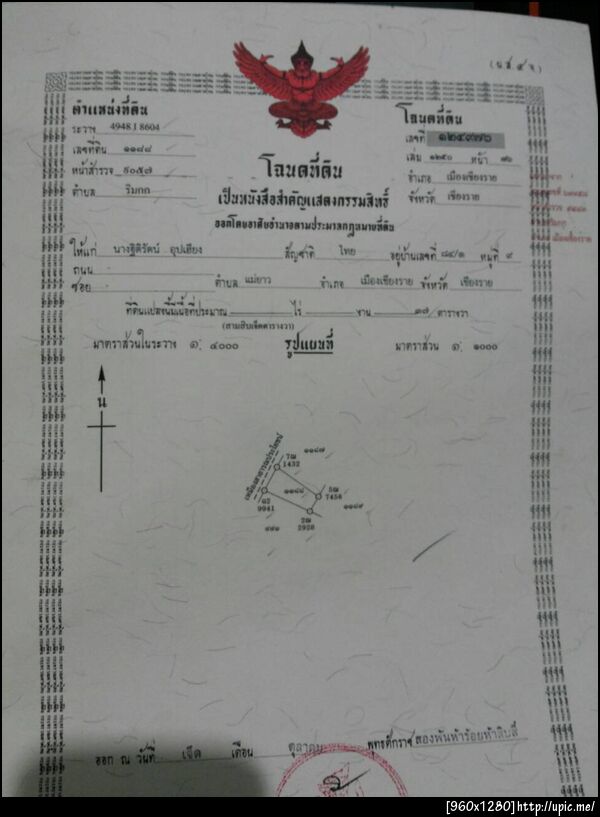 (น.ส. ๔ จ.)
ตำแหน่งที่ดิน
ระวาง 4948 I 8604
เลขที่ดิน ๑๑๘๘
หน้าสำรวจ ๖๐๕๗
ตำบล ริมกก
โฉนดที่ดิน
เลขที่ ๑๒๔๙๗๖
เล่ม ๑๒๕๐ หน้า ๗๖
อำเภอ เมืองเชียงราย
จังหวัด เชียงราย
โฉนดที่ดิน
เป็นหนังสือสำคัญแสดงกรรมสิทธิ์
ออกโดยอาศัยอำนาจตามประมวลกฎหมายที่ดิน
ให้แก่ นางฐิติรัตน์ อุปเฮียง สัญชาติ ไทย อยู่บ้านเลขที่ ๘๔/๑ หมู่ที่ ๙
ถนน
ซอย ตำบล แม่ยาว อำเภอ เมืองเชียงราย จังหวัด เชียงราย
ที่ดินแปลงนี้มีเนื้อที่ประมาณ ไร่ งาน ๓๗ ตารางวา
(สามสิบเจ็ดตารางวา)
มาตราส่วนในระวาง ๑: ๔๐๐๐ รูปแผนที่ มาตราส่วน ๑: ๑๐๐๐
น
เหมืองสาธารณประโยชน์
๑๑๘๗
7ฌ
1432
๑๑๘๘
5ฌ
7456
9941
2ฌ
2928
๑๑๘๙
ออก ณ วันที่ เจ็ด เดือน ตุลาคม พุทธศักราช สองพันห้าร้อยห้าสิบสี่
[960x1280]http://upic.me/